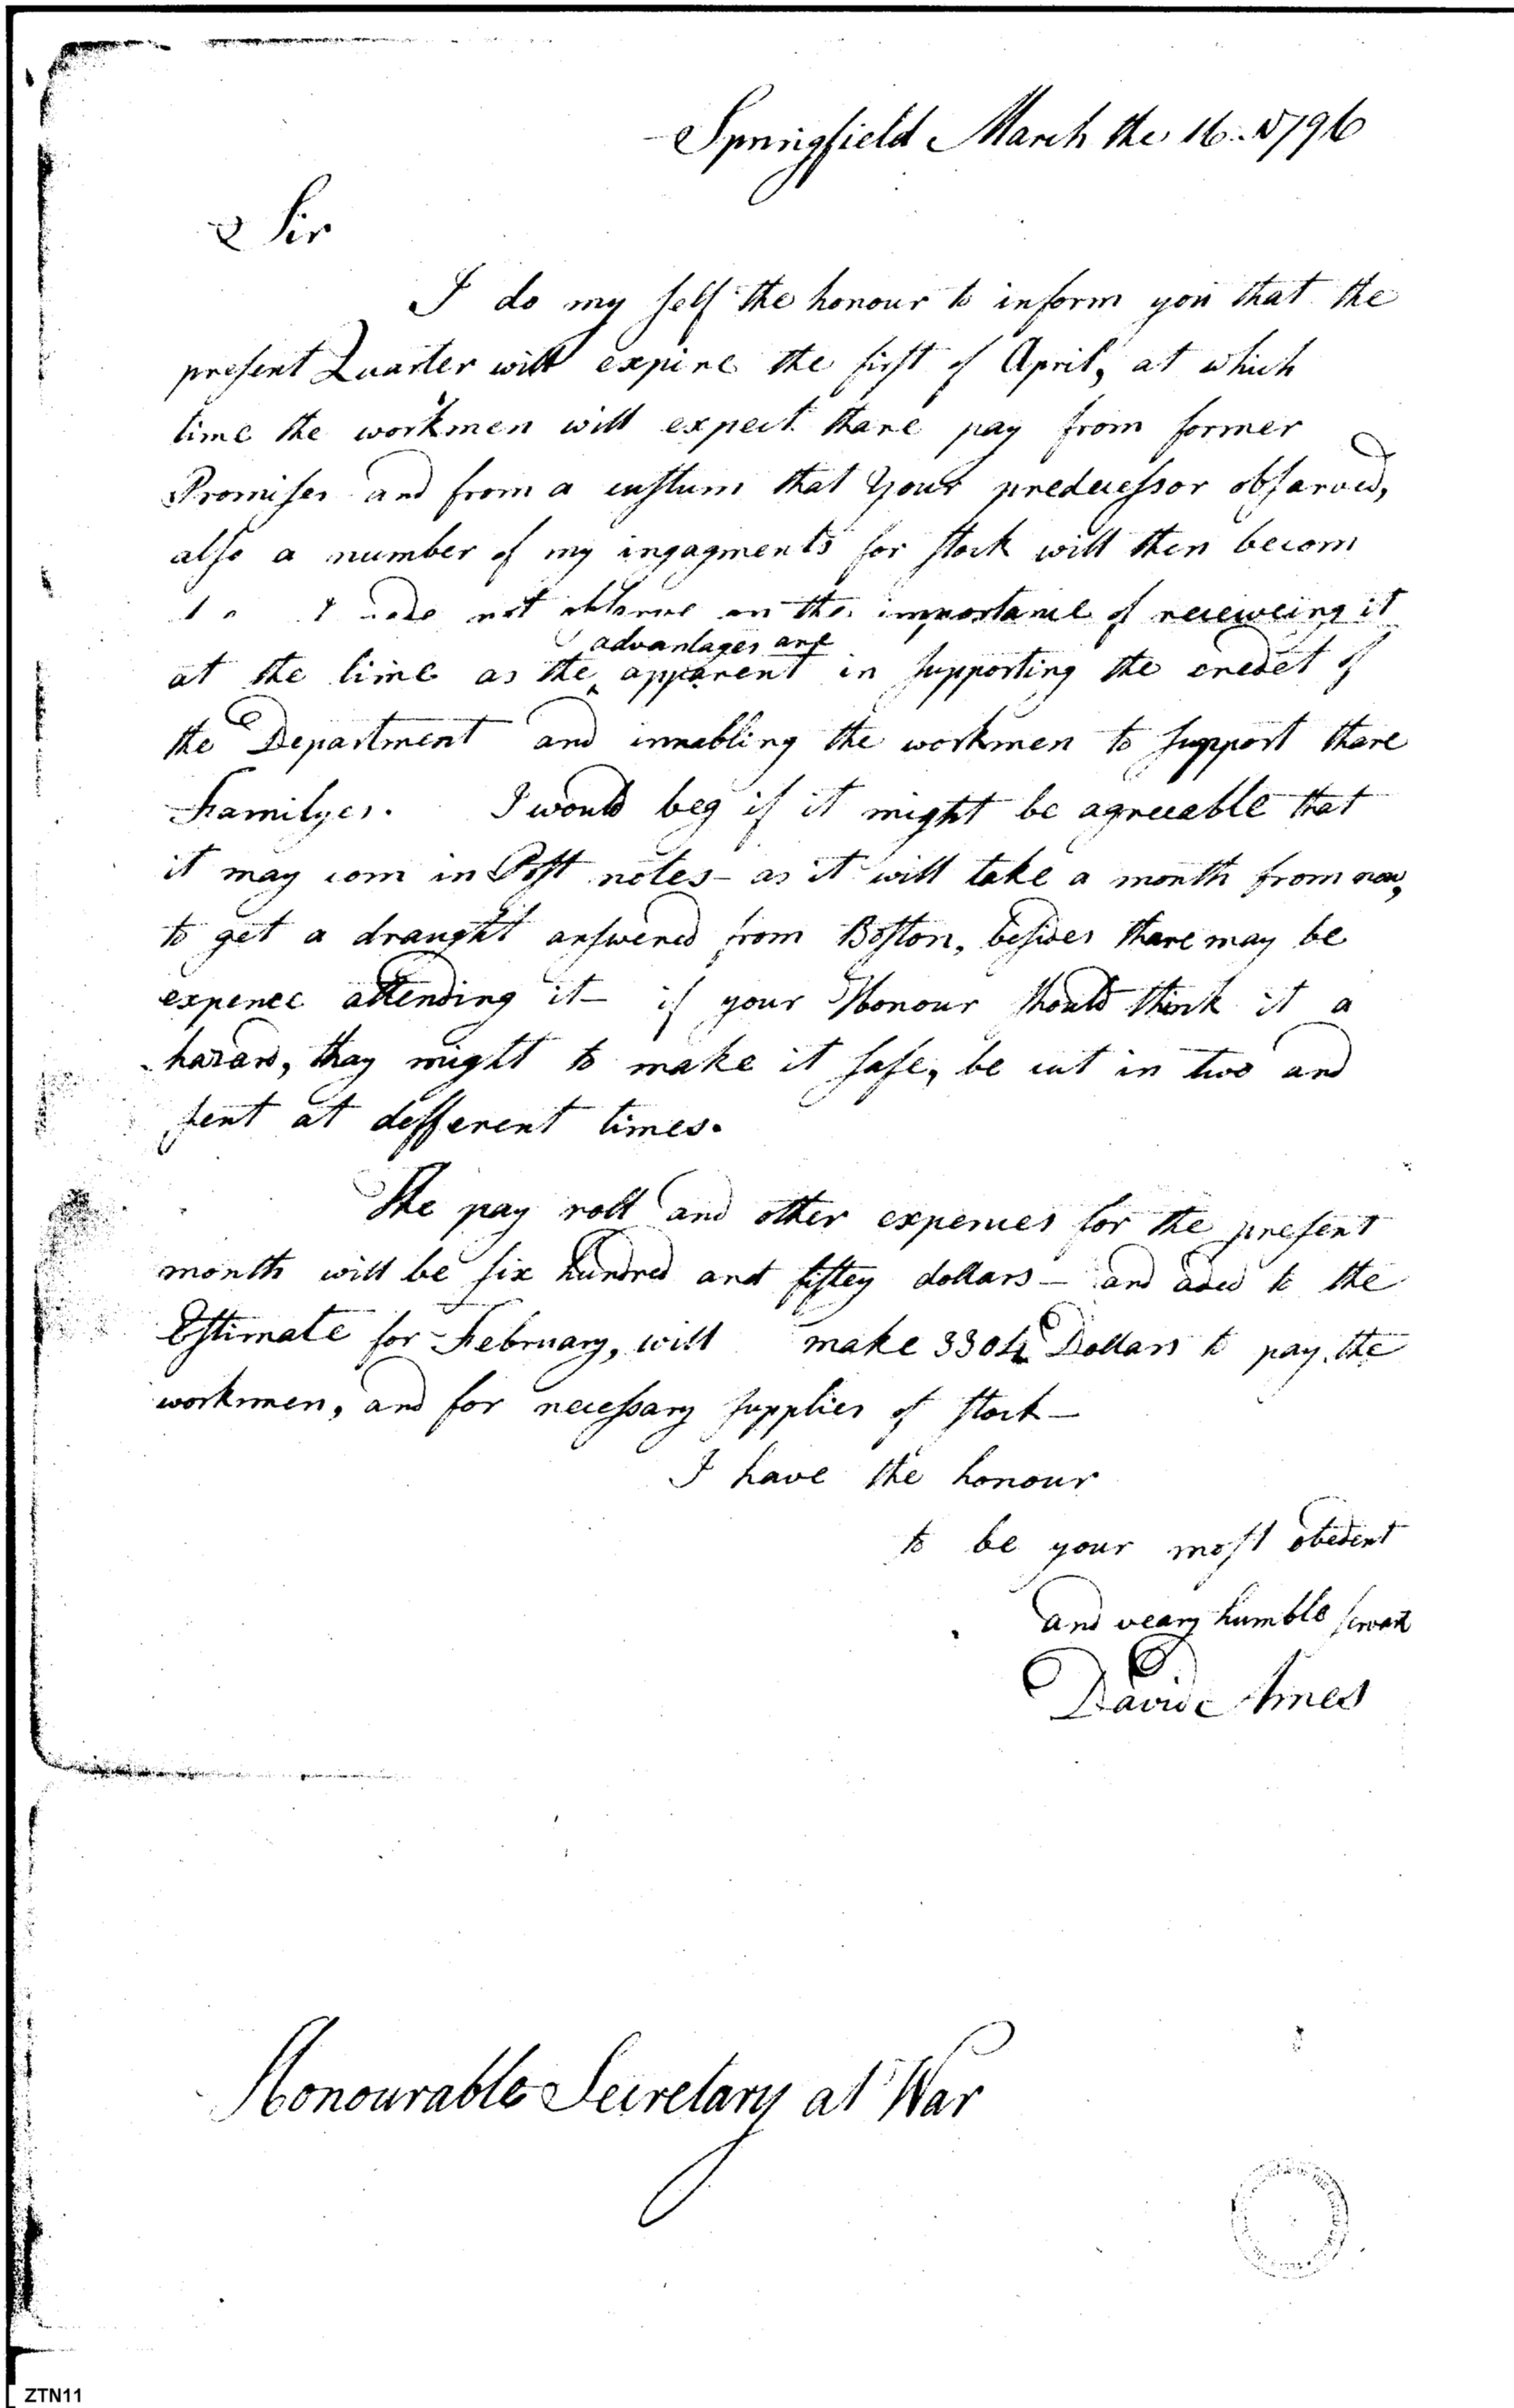 Springfield March the 16. 1796
Sir
I do my self the honour to inform you that the
present Quarter will expire the first of April, at which
time the workmen will expect thare pay from former
Promises and from a custum that Your predecessor obsarved,
also a number of my ingagments for stock will then becom
not observe on the importance of receiveing it
advantages are
at the time as the apparent in supporting the credet of
the Department and innabling the workmen to support thare
Familyes. I would beg if it might be agreeable that
it may com in Post notes - as it will take a month from now,
to get a draught answered from Boston, besides thare may be
expence attending it - if your Honour should think it a
hazard, thay might to make it safe, be cut in two and
sent at defferent times.
The pay roll and other expences for the present
month will be six hundred and fiftey dollars - and aded to the
Estimate for February, will make 3304 Dollars to pay the
workmen, and for necessary supplies of stock -
I have the honour
to be your most obedent
and veary humble servant
David Ames
Honourable Secretary at War
ZTN11